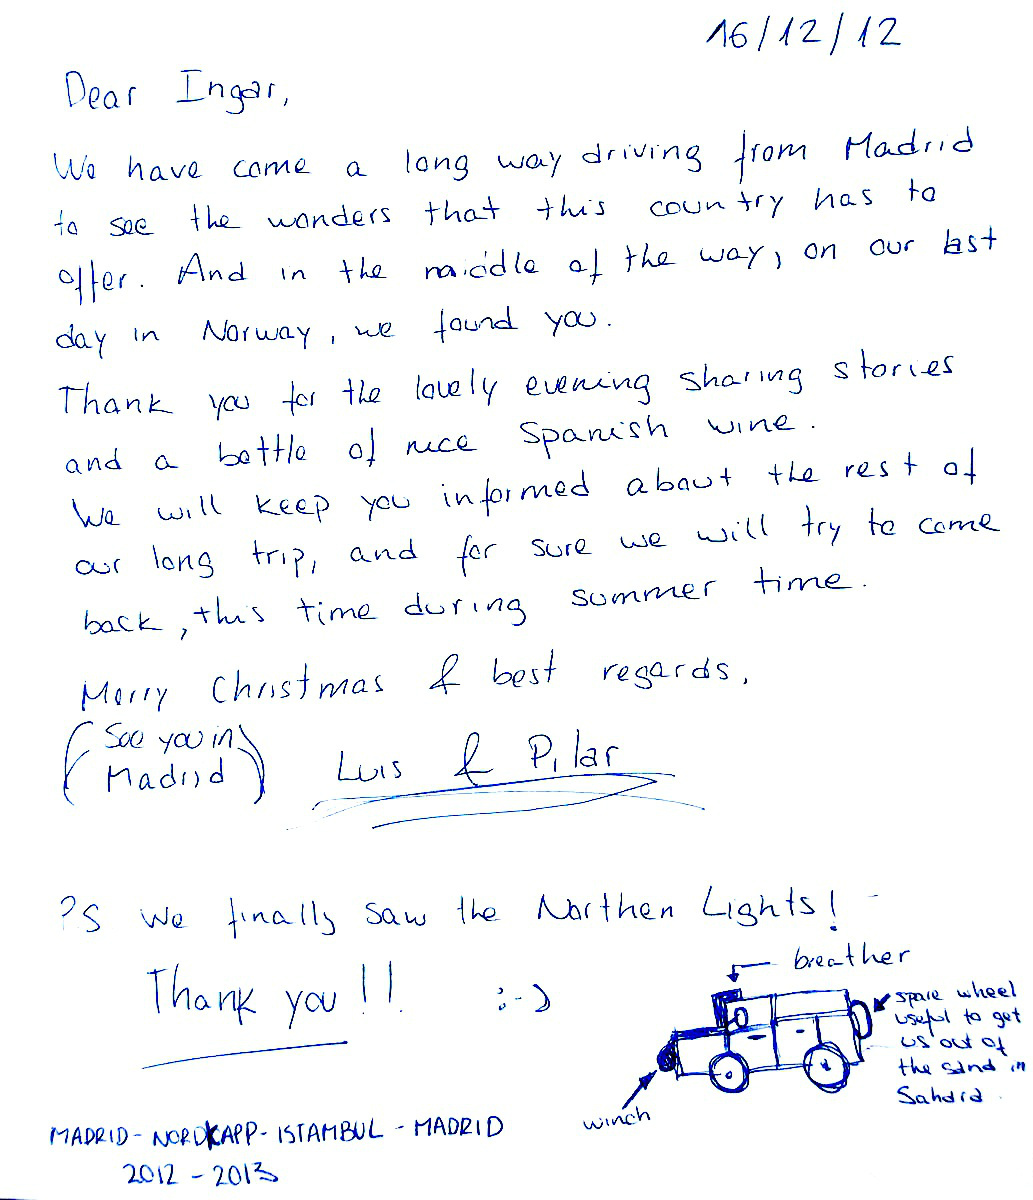 16/12/12
Dear Ingar,
We have come a long way driving from Madrid
to see the wonders that this country has to
offer. And in the middle of the way, on our last
day in Norway, we found you.
Thank you for the lovely evening sharing stories
and a bottle of nice Spanish wine.
We will keep you informed about the rest of
our long trip, and for sure we will try to come
back, this time during summer time.
Merry Christmas & best regards,
(See you in
Madrid)
Luis & Pilar
PS We finally saw the Northen Lights!
Thank you!! :-)
breather
spare wheel
useful to get
us out of
the sand in
Sahara.
winch
MADRID - NORDKAPP - ISTAMBUL - MADRID
2012 - 2013